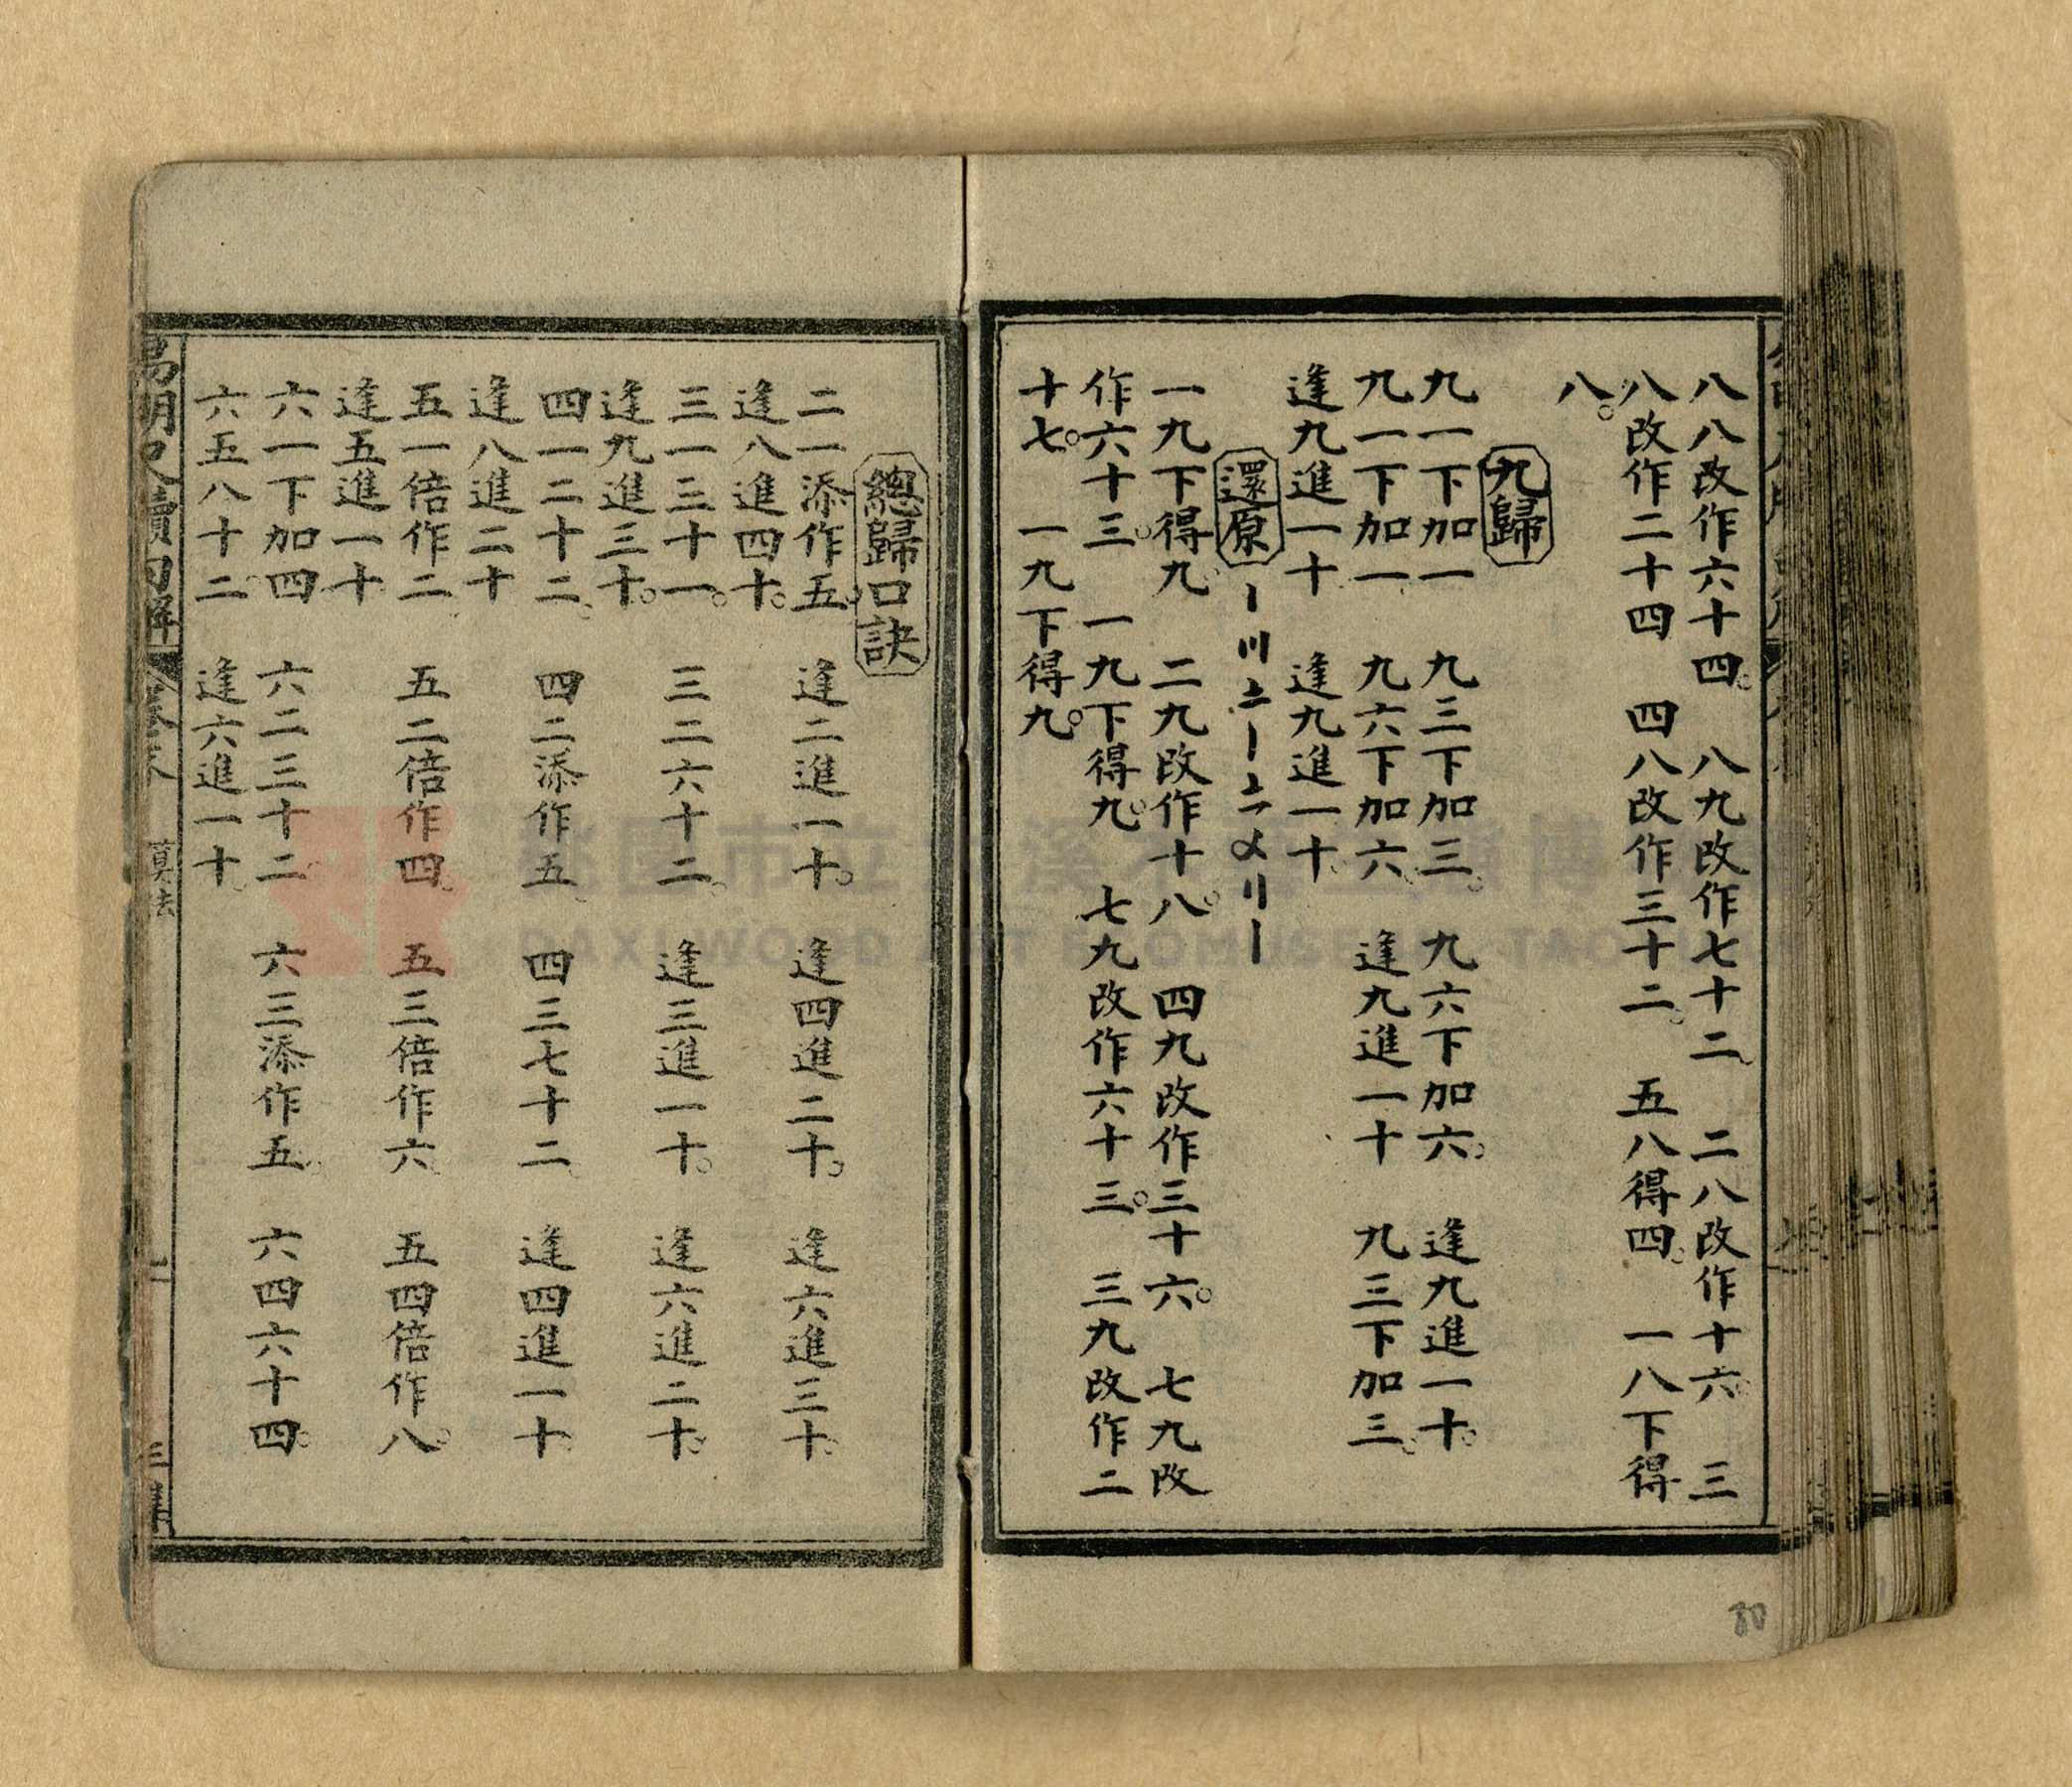 八八改作六十四。 八九改作七十二。 二八改作十六。 三
八改作二十四 四八改作三十二。 五八得四。 一八下得
八。
九歸
九一下加一 九三下加三。 九六下加六。 逢九進一十。
九一下加一 九六下加六。 逢九進一十 九三下加三。
逢九進一十 逢九進一十
還原 〡〣〧〡〧〤〢〡
一九下得九 二九改作十八。 四九改作三十六。 七九改
作六十三。 一九下得九。 七九改作六十三。 三九改作二
十七。 一九下得九。
總歸口訣
二一添作五。 逢二進一十。 逢四進二十。 逢六進三十
逢八進四十。
三一三十一。 三二六十二。 逢三進一十。 逢六進二十
逢九進三十。
四一二十二。 四二添作五。 四三七十二 逢四進一十
逢八進二十
五一倍作二 五二倍作四。 五三倍作六 五四倍作八。
逢五進一十
六一下加四 六二三十二。 六三添作五。 六四六十四。
六五八十二 逢六進一十。
三集
80